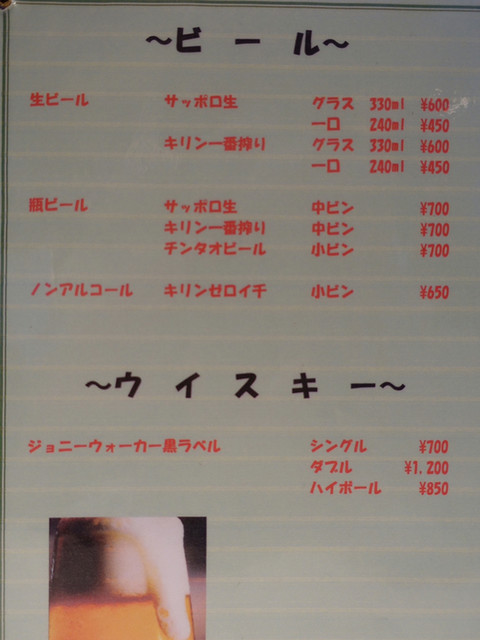 ～ビール～
生ビール サッポロ生 グラス 330ml ¥600
一口 240ml ¥450
キリン一番搾り グラス 330ml ¥600
一口 240ml ¥450
瓶ビール サッポロ生 中ビン ¥700
キリン一番搾り 中ビン ¥700
チンタオビール 小ビン ¥700
ノンアルコール キリンゼロイチ 小ビン ¥650
～ウイスキー～
ジョニーウォーカー黒ラベル シングル ¥700
ダブル ¥1,200
ハイボール ¥850